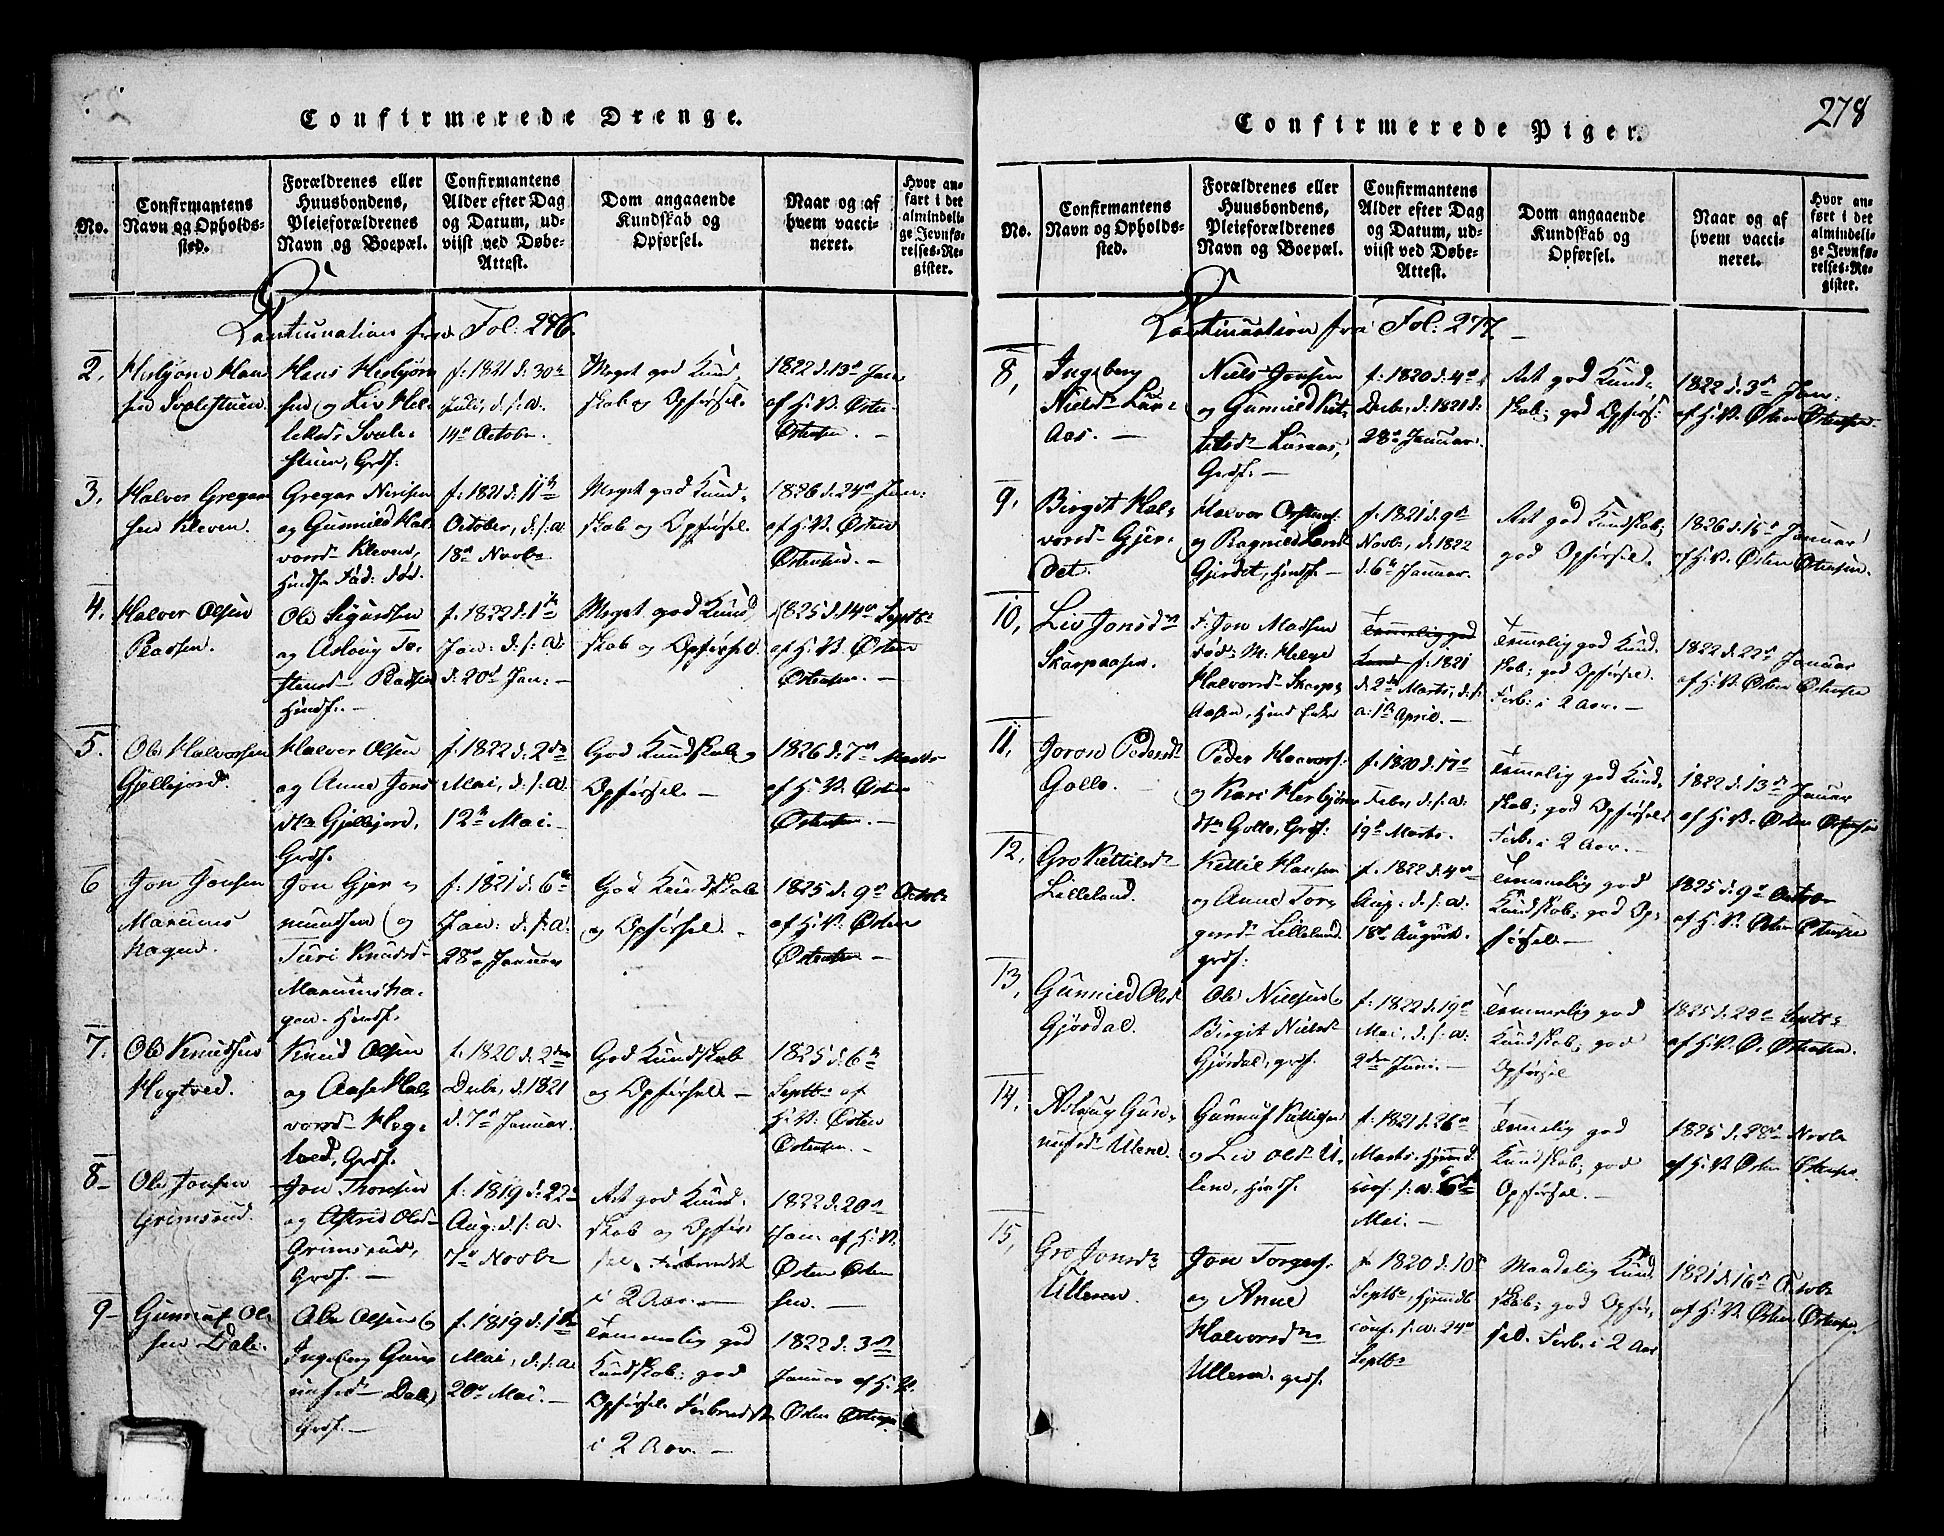 Confirmerede Drenge.
No.
Confirmantens
Navn og Opholds-
sted.
Forældrenes eller
Huusbondens,
Pleieforældrenes
Navn og Boepæl.
Confirmantens
Alder efter Dag
og Datum, ud-
viist ved Døbe-
Attest.
Dom angaaende
Kundskab og
Opførsel.
Naar og af
hvem vacci-
neret.
Hvor an-
ført i det
almindeli-
ge Jevnfø-
relses-Re-
gister.
Continuation fra Fol: 276.
2,
Hans Herbjørn
sen og Liv
f: 1821 d: 30te
Juli, d: s: a:
14de October.
Meget god Kund
skab og Opførsel.
1822 d: 13de Jan
af H: P: Østen
Østensen. —
3,
Halvor Gregar
sen Kleven.
Gregar
og Gunnild Hal
vorsd: Kleven,
f: 1821 d: 11te
October, d: s: a:
18de Novbr.
Meget god Kund
skab og Opførsel. —
1826 d: 24de Jan:
af H: P: Østen
Østensen. —
4.
Halvor Olsen
Plassen.
Ole Sigurdsen
og Aslaug To-
stensd: Plassen
f: 1822 d: 1te
Jan: d: s: a:
d: 20de Jan: —
Meget god Kund
skab og Opførsel
1825 d: 14de Septbr
af H: P: Østen
Østensen. —
5.
Ole Halvorsen
Gjellejord.
Halvor Olsen
og Anne Jons
dtr Gjellejord,
f: 1822 d: 2den
Mai, d: s: a:
12te Mai. —
God Kundskab og
Opførsel. —
1826 d: 7de Marts
af H: P: Østen
Østensen. —
6
Jon Jonsen
Jon Gjer-
mundsen og
Turi Knudsd:
f: 1821 d: 6te
Jan: d: s: a:
28de Januar
God Kundskab
og Opførsel. —
1825 d: 9de Octobr
af H: P: Østen
Østensen —
7.
Ole Knudsen
Hegtved.
Knud Olsen
og Aase Hal-
vorsd: Heg-
tved, Grdf.
f: 1820 d: 2den
Decbr, d: 1821
d: 7de Januar.
God Kundskab
og Opførsel. —
1825 d: 6te
Septbr af
H: P: Østen
Østensen. —
8-
Ole Jonsen
Grimsrud.
Jon Thoresen
og Astrid Olsd:
Grimsrud,
Grdf. —
f: 1819 d: 22de
Aug: d: s: a:
7de Novbr
Art god Kund-
skab og Opfør-
sel, Forberedet
i 2 Aar. —
1822 d: 20de
Jan: af H: P:
Østen Østen
sen. —
9-
Gunnuf Ol-
sen Dale.
Ole Olsen og
Ingeborg Gun
nufsd: Dale,
Grdf. —
f: 1819 d: 1te
Mai, d: s: a:
20de Mai. —
Temmelig god
Kundskab: god
Opførsel Forberedet
i 2 Aar. —
1822 d: 3de
Januar af H: P:
Østen Østensen
278
Confirmerede Piger.
No.
Confirmantens
Navn og Opholds-
sted.
Forældrenes eller
Huusbondens,
Pleieforældrenes
Navn og Boepæl.
Confirmantens
Alder efter Dag
og Datum, ud-
viist ved Døbe-
Attest.
Dom angaaende
Kundskab og
Opførsel.
Naar og af
hvem vacci-
neret.
Hvor an-
ført i det
almindeli-
ge Jevnfø-
relses-Re-
gister.
Continuation fra Fol: 277. —
8,
Ingeborg
Nielsd: Lur-
Aas. —
Niels Jonsen
og Gunnild Ket-
telsd: Luraas,
Grdf. —
f: 1820 d: 4de
Decbr, d: 1821 d:
28de Januar.
Art god Kund-
skab; god Opførs:
1822 d: 3de Jan:
af H: P: Østen Østensen.
9,
Birgit Hal-
vorsd: Gjer-
det.
Gjerdet,
f: 1821 d: 9de
Novbr, d: 1822
d: 6te Januar.
Art god Kundskab;
god Opførsel.
1826 d: 15de Januar
af H: P: Østen Østensen.
10,
Liv Jonsdtr
Skarpaasen.
F: Jon Madsen
død. M: Helge
Halvorsd: Skarp-
Aasen,
Temmelig god
Kund f: 1821
d: 2den Marts, d: s:
a: 1te April. —
Temmelig god Kund
skab; god Opførsel.
Forb: i 2 Aar. —
1822 d: 22de Januar
af H: P: Østen Østensen
11,
Joron Pedersd:
Gollo. —
Peder Halvors:
og Kari Herbjørns
dtr Gollo, Grdf:
f: 1820 d: 17de
Febr, d: s: a:
19de Marts.
Temmelig god Kund-
skab; god Opførsel.
Forb: i 2 Aar. —
1822 d: 13de Januar
af H: P: Østen Østensen
12,
Gro Kettilsd:
Lilleland.
Kettil Hansen
og Anne Tor-
gersd: Lilleland.
grdf:
f: 1822 d: 4de
Aug: d: s: a:
18de August.
Temmelig god
Kundskab; god Op-
førsel. —
1825 d: 9de Octobr
af H: P: Østen Østensen
13,
Gunnild Olsd:
Gjøsdal.
Ole Nielsen og
Birgit Nielsd:
Gjøsdal, grdf.
f: 1822 d: 19de
Mai, d: s: a:
9de Juni. —
Temmelig god
Kundskab; god
Opførsel
1825 d: 22de Septbr
af H: P: Ø. Østensen.
14,
Aslaug Gun-
nufsd: Ullene.
Gunnuf Kettilsen
og Liv Olsd: Ul-
lene,
f: 1821 d: 26de
Marts. hjemmed:
conf. s: a: 6te
Mai. —
Temmelig god
Kundskab; god
Opførsel. —
1825 d: 28de Novbr
af H: P: Østen Østensen.
15,
Gro Jonsd:
Ulleren.
Jon Torgers:
og Anne
Halvorsdtr
Ulleren. grdf.
f: 1820 d: 10de
Septbr, hjemmed:
conf. s: a: 24de
Septbr
Maadelig Kund
skab; god Opfør-
sel. Forb: i 2 Aar
1821 d: 16de Octobr
af H: P: Østen Østensen.